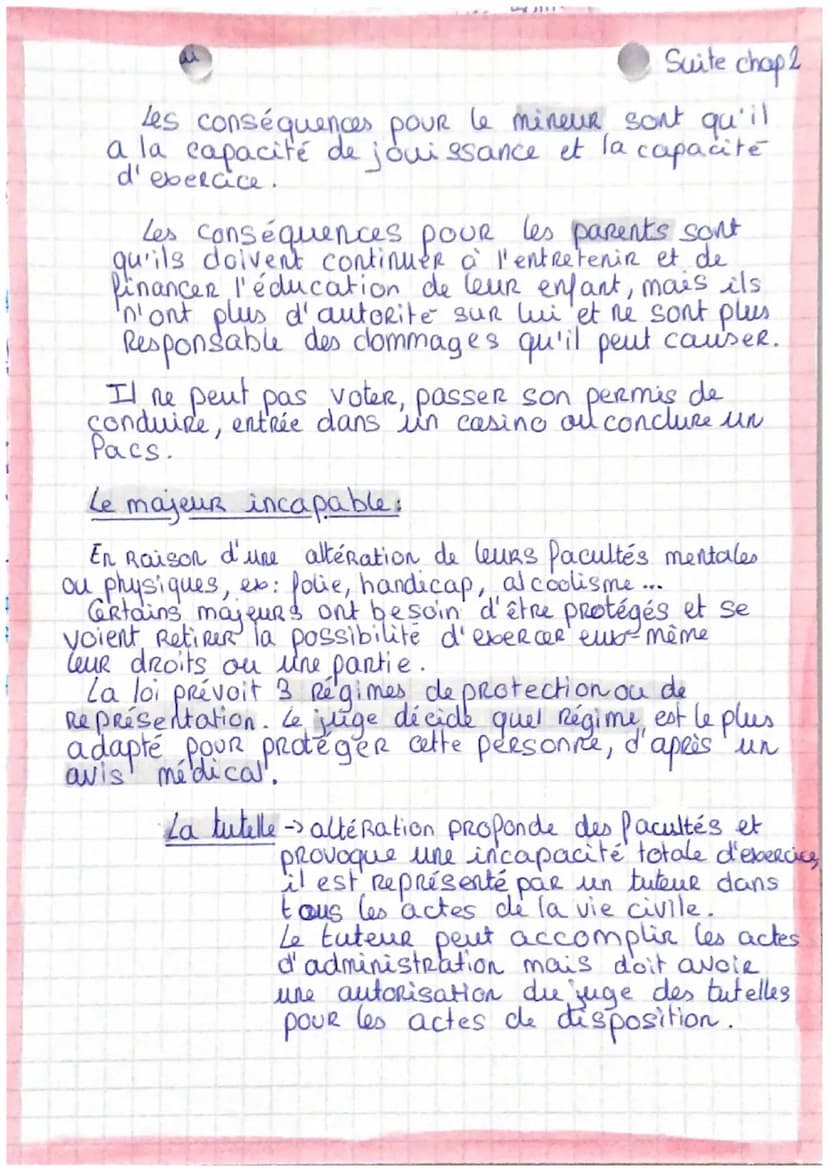 Suite chap 2
Les conséquences pour le mineur sont qu'il
a la capacité de jouissance et la capacité
d'exercice.
Les conséquences pour les parents sont
qu'ils doivent continuer à l'entretenir et de
financer l'éducation de leur enfant, mais ils
n'ont plus d'autorité sur lui et ne sont plus
Responsable des dommages qu'il peut causer.
Il ne peut pas voter, passer son permis de
conduire, entrée dans un casino ou conclure un
Pacs.
Le majeur incapable :
En Raison d'une altération de leurs facultés mentales
ou physiques, ex : folie, handicap, alcoolisme ...
Certains majeurs ont besoin d'être protégés et se
voient Retirer la possibilité d'exercer eux-même
leur droits ou une partie.
La loi prévoit 3 Régimes de protection ou de
Représentation. Le juge décide quel Régime est le plus
adapté pour protéger cette personne, d'après un
avis médical.
La tutelle -> altération profonde des facultés et
provoque une incapacité totale d'exercice,
il est représenté par un tuteur dans
tous les actes de la vie civile.
Le tuteur peut accomplir les actes
d'administration mais doit avoir
une autorisation du juge des tutelles
pour les actes de disposition.